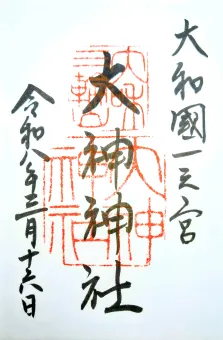 大和國一之宮
大神神社
令和八年三月十六日